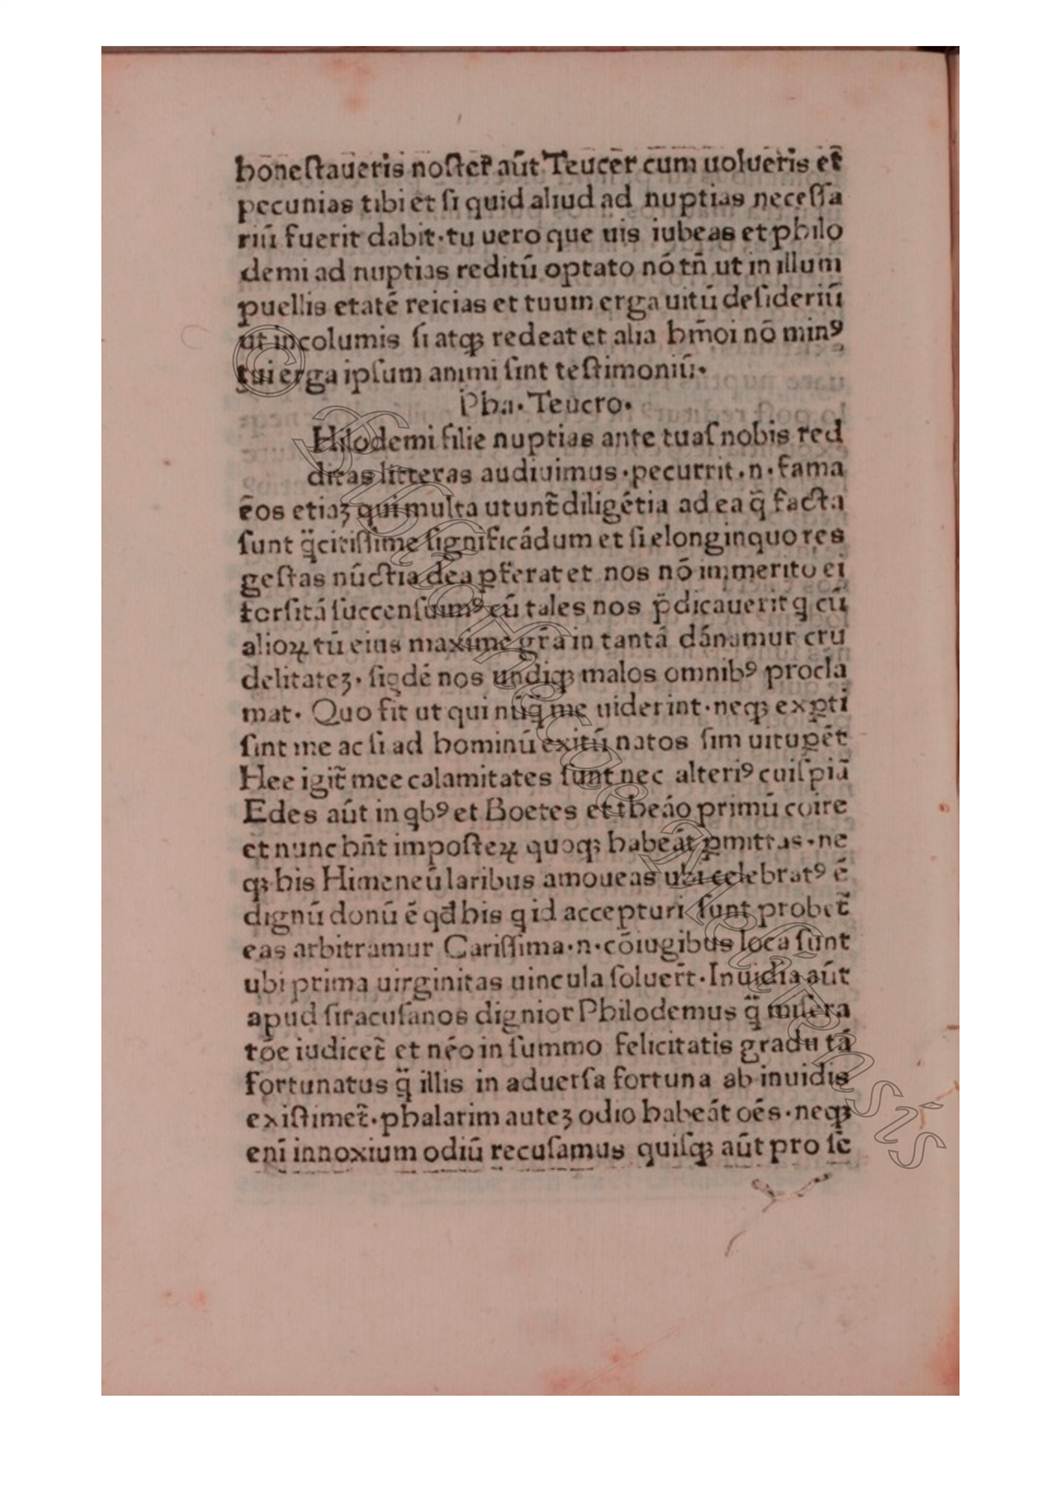 honeſtaueris noſter̄ aūt Teucer cum uolueris et
pecunias tibi et ſi quid aliud ad nuptias neceſſa
riū fuerit dabit·tu uero que uis iubeas et philo
demi ad nuptias reditū optato nō tñ ut in illum
puellis etatē reicias et tuum erga uitū deſideriū
ut incolumis ſi atqꝫ redeat et alia hm̄oi nō minꝰ
tui erga ipſum animi ſint teſtimoniū·
Pha· Teucro·
Hilodemi filie nuptias ante tuaſ nobis red
ditas litteras audiuimus·pecurrit·n·fama
eos etiaꝫ qui multa utunt̄ diligētia ad ea q̄ facta
ſunt q̄citiſſime ſignificádum et ſi elonginquo res
geſtas nūctia dea ꝑferat et nos nō immerito ei
terſitá ſuccenſuimꝰ cū tales nos p̄dicauerit q̄ cū
alioꝝ tū eius maxime gr̄a in tantá dánamur cru
delitateꝫ· ſiq̄dē nos undiqꝫ malos omnibꝰ procla
mat· Quo fit ut qui nūq̄ me uiderint·neqꝫ exꝑti
ſint me ac ſi ad hominū exitū natos ſim uituꝑēt
Hee igit̄ mee calamitates ſunt nec alteriꝰ cuiſpiā
Edes aūt in qbꝰ et Boetes et theáo primū coire
et nunc hn̄t impoſteꝝ quoqꝫ habeāt ꝑmittas·ne
qꝫ his Himeneū laribus amoueas ubi celebratꝰ ē
dignū donū ē qđ his qid accepturi ſunt probet̄
eas arbitramur Cariſſima·n·cōiugibus loca ſunt
ubi prima uirginitas uincula ſoluer̄t·Inuidia aūt
apud ſiracuſanos dignior Philodemus q̄ miſera
tōe iudicet̄ et nēo in ſummo felicitatis gradu tá
fortunatus q̄ illis in aduerſa fortuna ab inuidis
exiſtimet̄·phalarim auteꝫ odio habeāt oēs·neqꝫ
enī innoxium odiū recuſamus quiſqꝫ aūt pro ſe